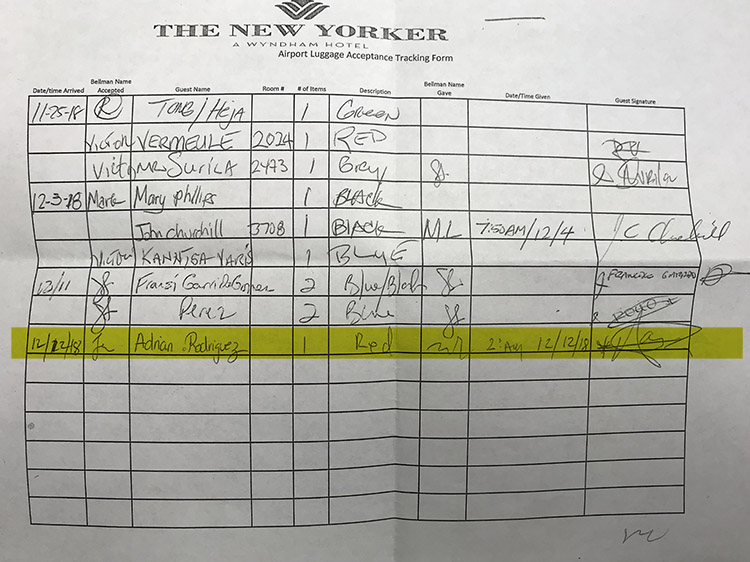 THE NEW YORKER
A WYNDHAM HOTEL
Airport Luggage Acceptance Tracking Form
Date/time Arrived Bellman Name Accepted Guest Name Room # # of Items Description Bellman Name Gave Date/Time Given Guest Signature
11-25-18 R TONG/HEJA 1 GREEN
Victor VERMEULE 2024 1 RED
Victor MR SURILA 2473 1 Grey
12-3-18 Mark Mary Phillips 1 BLACK
John Churchill 3708 1 BLACK M.L 7:50AM/12/4 J C Churchill
Victor 1 BLUE
12/11 2 Blue/Black
Perez 2 Blue
12/12/18 Adrian Rodriguez 1 Red 12/12/18